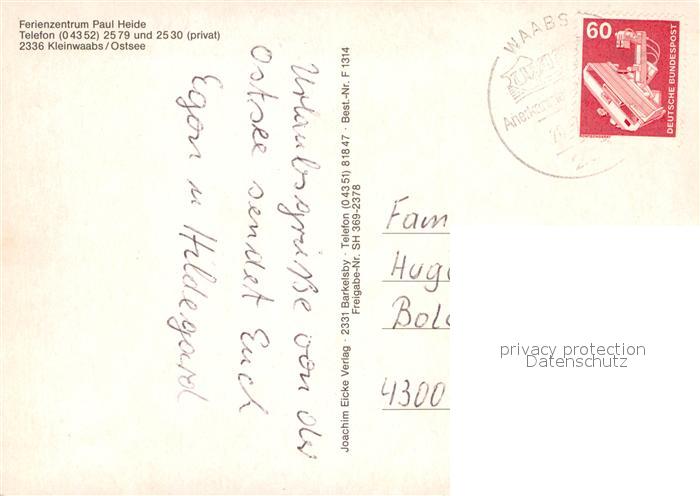 Ferienzentrum Paul Heide
Telefon (0 43 52) 25 79 und 25 30 (privat)
2336 Kleinwaabs/Ostsee
Urlaubsgrüße von der
Ostsee sendet Euch
Egon u Hildegard
Joachim Eicke Verlag · 2331 Barkelsby · Telefon (0 43 51) 8 18 47 · Best.-Nr. F 1314
Freigabe-Nr. SH 369-2378
WAABS
60
DEUTSCHE BUNDESPOST
Fam
Hug
Bol
4300
privacy protection
Datenschutz